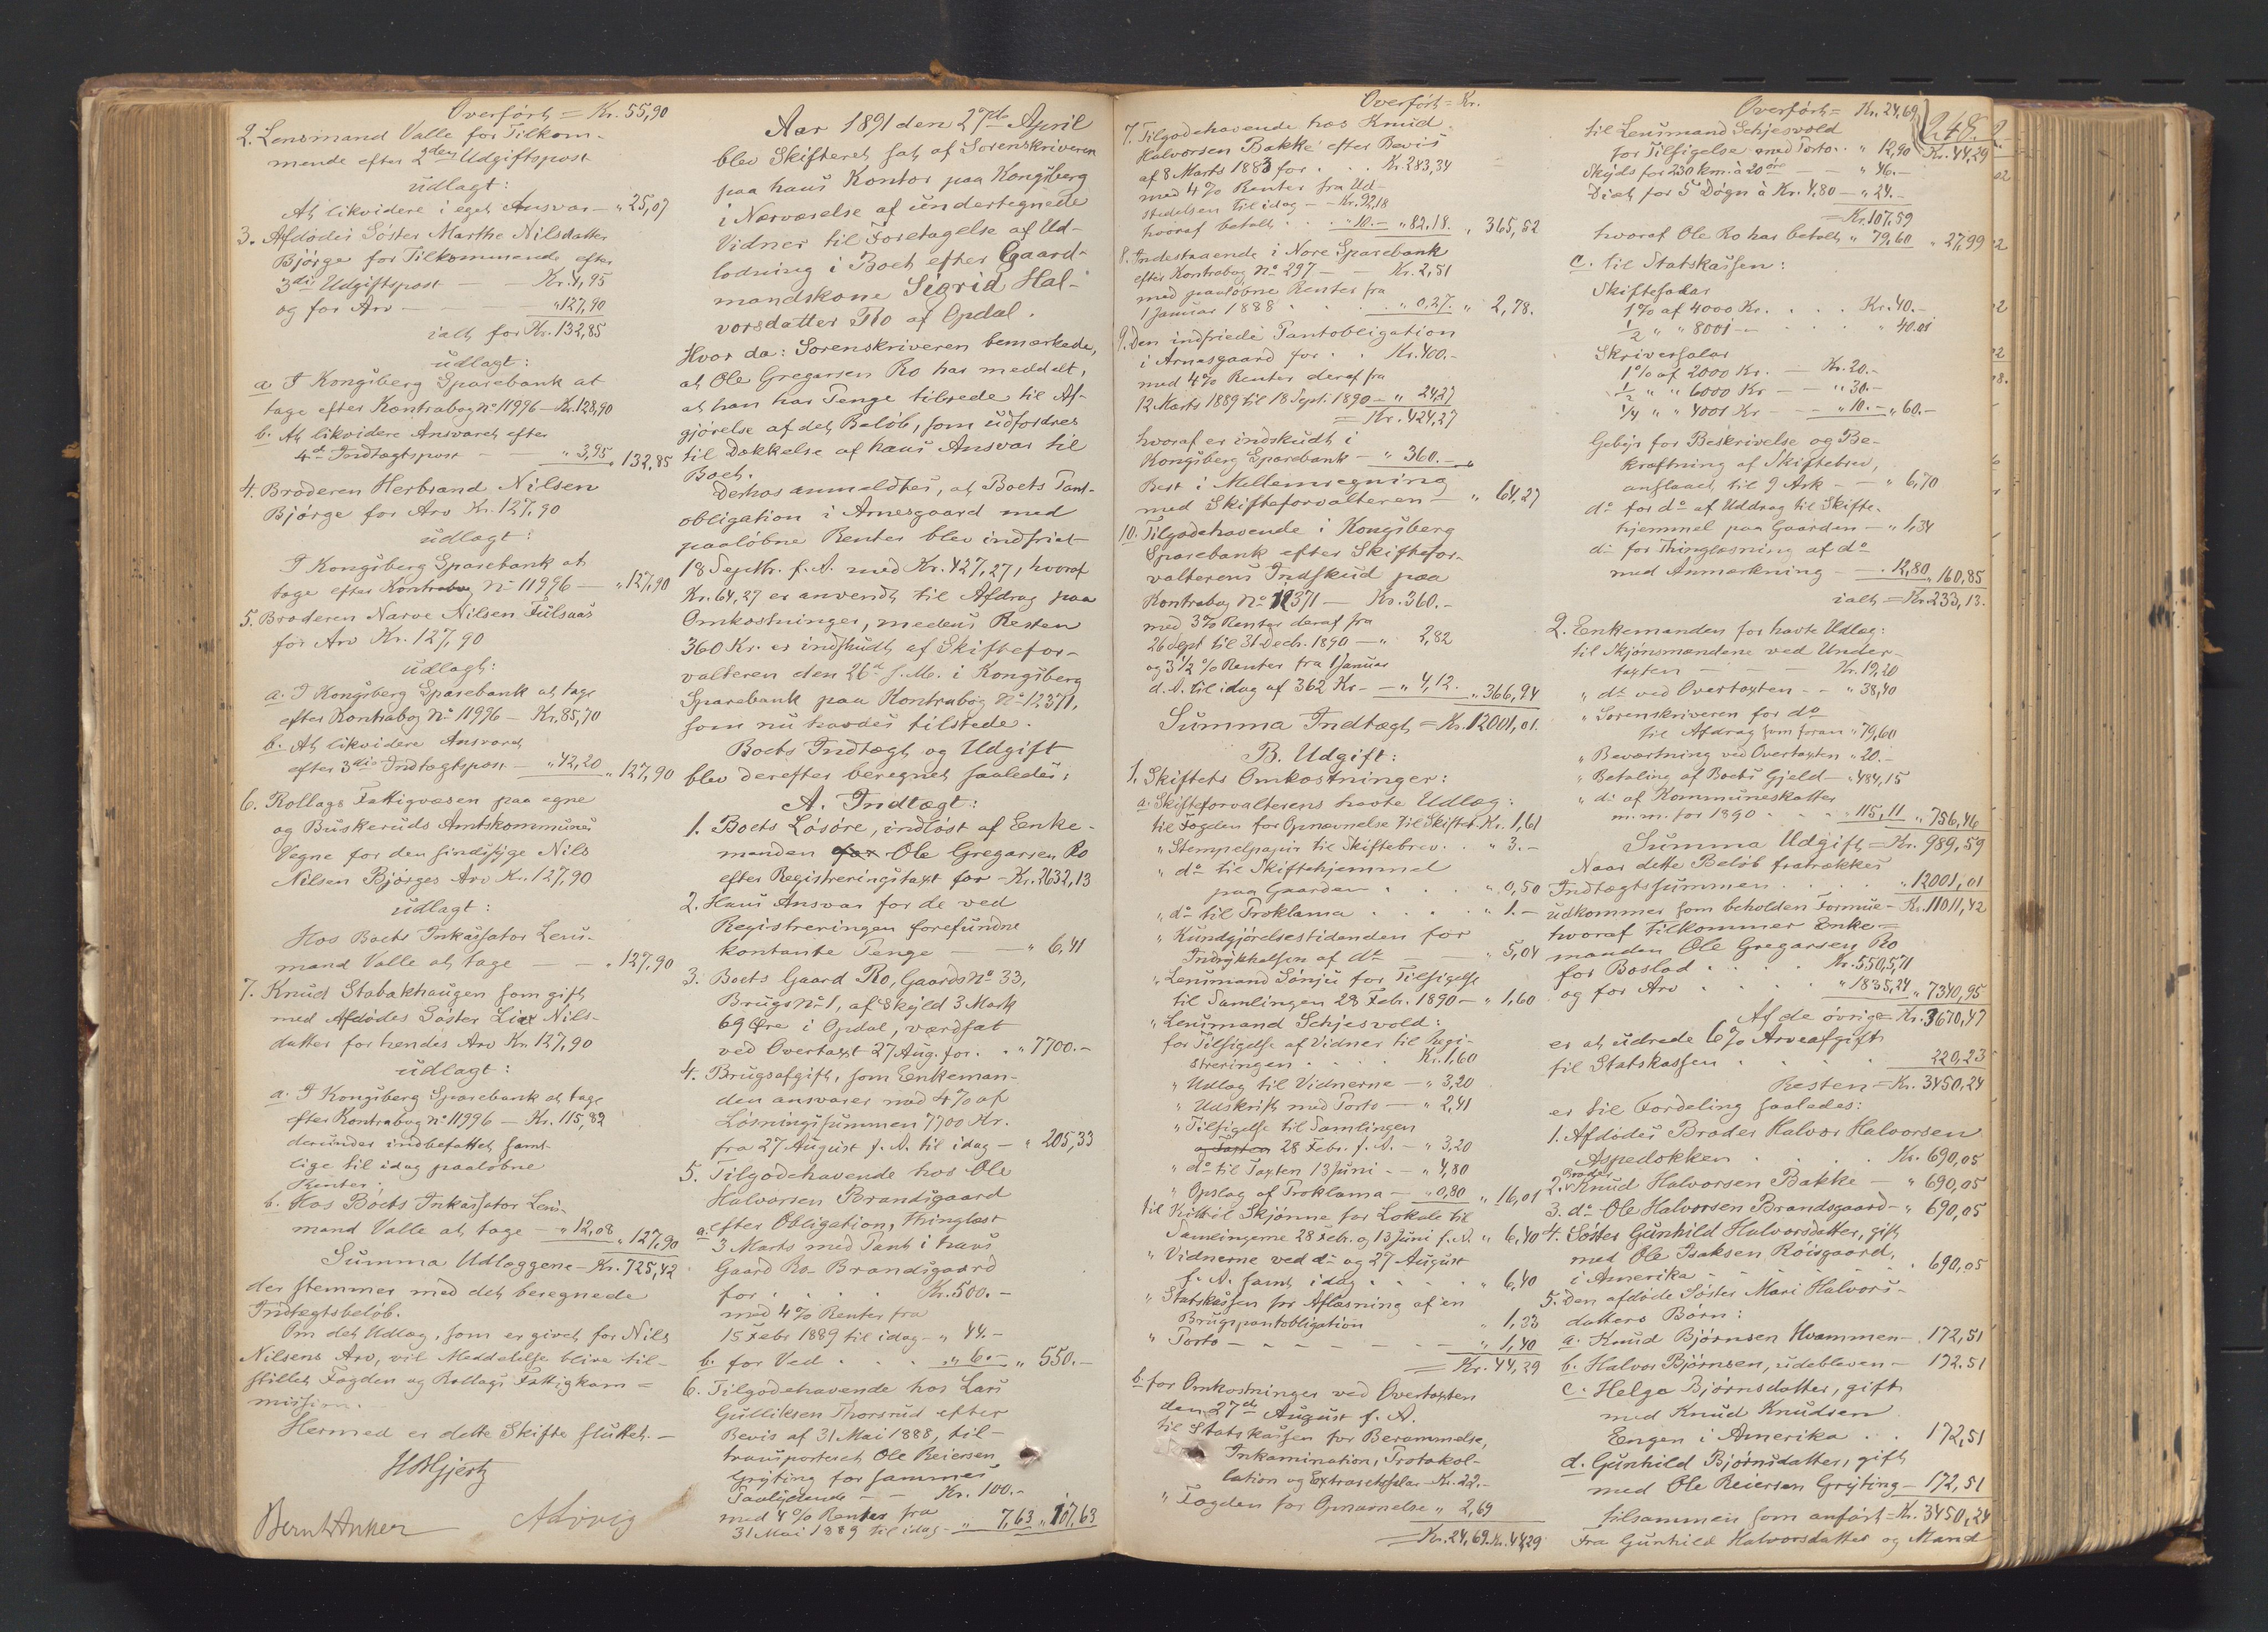 Overført = Kr. 55,90
2. Lensmand Valle for Tilkom-
mende efter 2den Udgiftspost
udlagt:
At likvidere i eget Ansvar — " 25,07
3. Afdødes Søster Marthe Nilsdatter
Bjørge for Tilkommende efter
3die Udgiftspost — — Kr. 4,95
og for Arv — — " 127,90
ialt for Kr. 132,85
udlagt:
a. I Kongsberg Sparebank at
tage efter Kontrabog No 11996 — Kr. 128,90
b. At likvidere Ansvaret efter
4de Indtægtspost — — " 3,95 " 132,85
4. Broderen Herbrand Nilsen
Bjørge for Arv Kr. 127,90
udlagt:
I Kongsberg Sparebank at
tage efter Kontrabog No 11996 — " 127,90
5. Broderen Narve Nilsen Fulsaas
for Arv Kr. 127,90
udlagt:
a. I Kongsberg Sparebank at tage
efter Kontrabog No 11996 — Kr. 85,70
b. At likvidere Ansvaret
efter 3die Indtægtspost — " 42,20 " 127,90
6. Rollags Fattigvæsen paa egne
og Buskeruds Amtskommunes
Vegne for den sindssyge Nils
Nilsen Bjørges Arv Kr. 127,90
udlagt:
Hos Boets Inkassator Lens-
mand Valle at tage — — " 127,90
7. Knud Stabakhaugen som gift
med Afdødes Søster Live Nils-
datter for hendes Arv Kr. 127,90
udlagt:
a. I Kongsberg Sparebank at tage
efter Kontrabog No 11996 — Kr. 115,82
derunder indbefattet samt-
lige til idag paaløbne
Renter.
b. Hos Boets Inkassator Lens-
mand Valle at tage — " 12,08 " 127,90
Summa Udlæggene — Kr. 725,42
der stemmer med det beregnede
Indtægtsbeløb.
Om det Udlæg, som er givet for Nils
Nilsens Arv, vil Meddelelse blive til-
stillet Fogden og Rollags Fattigkom=
mission.
Hermed er dette Skifte sluttet. —
Bernt Anker
Aar 1891 den 27de April
blev Skifteret sat af Sorenskriveren
paa hans Kontor paa Kongsberg
i Nærværelse af undertegnede
Vidner til Foretagelse af Ud-
lodning i Boet efter Gaard-
mandskone Sigrid Hal-
vorsdatter Ro af Opdal.
Hvor da: Sorenskriveren bemærkede,
at Ole Gregarsen Ro har meddelt,
at han har Penge tilrede til Af-
gjørelse af det Beløb, som udfordres
til Dækkelse af hans Ansvar til
Boet.
Derhos anmeldtes, at Boets Pant-
obligation i Arnesgaard med
paaløbne Renter blev indfriet
18 Septbr. f. A. med Kr. 427,27, hvoraf
Kr. 64,27 er anvendt til Afdrag paa
Omkostninger, medens Resten
360 Kr. er indskudt af Skiftefor-
valteren den 26de s. M. i Kongsberg
Sparebank paa Kontrabog No 12371,
som nu havdes tilstede.
Boets Indtægt og Udgift
blev derefter beregnet saaledes:
A. Indtægt:
1. Boets Løsøre, indløst af Enke-
manden for Ole Gregarsen Ro
efter Registreringstaxt for — Kr. 2632,13
2. Hans Ansvar for de ved
Registreringen forefundne
kontante Penge — — " 6,41
3. Boets Gaard Ro, Gaards No 33,
Brugs No 1, af Skyld 3 Mark
69 Øre i Opdal, værdsat
ved Overtaxt 27 Aug. for . . " 7700.—
4. Brugsafgift, som Enkeman-
den ansvarer med 4% af
Løsningssummen 7700 Kr.
fra 27 August f. A. til idag — " 205,33
5. Tilgodehavende hos Ole
Halvorsen Brandsgaard
a. efter Obligation, thinglæst
3 Marts med Pant i hans
Gaard Ro-Brandsgaard
for . . . . Kr. 500.—
med 4% Renter fra
15 Febr 1889 til idag — " 44.—
b. for Ved . . . " 6.— " 550.—
6. Tilgodehavende hos Lars
Gulliksen Thorsrud efter
Bevis af 31 Mai 1888, til-
transporteret Ole Reiersen
Grøting for sammes
Paalydende — — Kr. 100.—
med 4% Renter fra
31 Mai 1889 til idag — " 7,63 " 107,63
Overført = Kr.
7. Tilgodehavende hos Knud
Halvorsen Bakke efter Bevis
af 8 Marts 1883 for . . . Kr. 283,34
med 4% Renter fra Ud-
stedelsen til idag — Kr. 92,18
hvoraf betalt . . . " 10.— " 82,18. " 365,52
8. Indestaaende i Nore Sparebank
efter Kontrabog No 297 — — Kr. 2,51
med paaløbne Renter fra
1 Januar 1888 . . . " 0,27. " 2,78.
9. Den indfriede Pantobligation
i Arnesgaard for . . Kr. 400.—
med 4% Renter deraf fra
12 Marts 1889 til 18 Sept. 1890 — " 24,27
= Kr. 424,27
hvoraf er indskudt i
Kongsberg Sparebank — " 360.—
Rest i Mellemregning
med Skifteforvalteren — " 64,27
10. Tilgodehavende i Kongsberg
Sparebank efter Skiftefor-
valterens Indskud paa
Kontrabog No 12371 — Kr. 360.—
med 3% Renter deraf fra
26 Sept til 31 Decb. 1890 — " 2,82
og 3½% Renter fra 1 Januar
d. A. til idag af 362 Kr — " 4,12. " 366,94
Summa Indtægt = Kr. 12001,01.
B. Udgift:
1. Skiftets Omkostninger:
a. Skifteforvalterens havte Udlæg:
til Fogden for Opnævnelse til Skiftet. Kr. 1,61
" Stempelpapir til Skiftebrev . . " 3.—
" do til Skiftehjemmel
paa Gaarden . . . " 0,50
" do til Proklama . . . . " 1.—
" Kundgjørelsestidenden for
Indrykkelsen af do — — " 5,04
" Lensmand Sønju for Tilsigelse
til Samlingen 28 Febr. 1890 — " 1,60
" Lensmand Schjesvold:
for Tilsigelse af Vidner til Regi-
streringen . . . . Kr. 1,60
" Udlæg til Vidnerne — " 3,20
" Udskrift med Porto — " 2,41
" Tilsigelse til Samlingen
og Taxten 28 Febr. f. A. — " 3,20
" do til Taxten 13 Juni — " 4,80
" Opslag af Proklama — " 0,80 " 16,01
til Kittil Skjønne for Lokale til
Samlingerne 28 Febr. og 13 Juni f. A. " 6,40
" Vidnerne ved do og 27 August
f. A. samt idag . . . . " 6,40
" Statskassen for Aflæsning af en
Brugspantobligation " 1,33
" Porto — — — — — " 1,40
= Kr. 44,29
b. for Omkostninger ved Overtaxten
den 27de August f. A.
til Statskassen for Berammelse,
Inkamination, Protokol-
lation og Extraretssalar — Kr. 22.—
" Fogden for Opnævnelse " 2,69
= Kr. 24,69. Kr. 44,29
Overført = Kr. 24,69 Kr. 44,29
248.
til Lensmand Schjesvold
for Tilsigelse med Porto . . " 12,90
Skyds for 230 km. à 20 øre — — " 46.—
Diæt for 5 Døgn à Kr. 4,80 — " 24.—
= Kr. 107,59
hvoraf Ole Ro har betalt " 79,60 " 27,99
c. til Statskassen:
Skiftesalar
1% af 4000 Kr. . . . Kr. 40.—
½ " " 8001 — . . . " 40.01
Skriversalar
1% af 2000 Kr. — Kr. 20.—
½ " " 6000 Kr — — " 30.—
¼ " " 4001 Kr — — " 10.— " 60.—
Gebyr for Beskrivelse og Be-
kræftning af Skiftebrev,
anslaaet til 9 Ark — — " 6,70
do for do af Uddrag til Skifte-
hjemmel paa Gaarden — " 1,34
do for Thinglæsning af do
med Anmærkning — " 12,80 " 160,85
ialt = Kr. 233,13.
2. Enkemanden for havte Udlæg:
til Skjønsmændene ved Under-
taxten — — — Kr. 19,20
" do ved Overtaxten — — " 38,40
" Sorenskriveren for do
til Afdrag som foran " 79,60
" Beværtning ved Overtaxten " 20.—
" Betaling af Boets Gjæld — " 484,15
" do af Kommuneskatter
m. m. for 1890 . . . " 115,11 " 756,46
Summa Udgift = Kr. 989,59
Naar dette Beløb fratrækkes
Indtægtssummen . . . . " 12001,01
udkommer som beholden Formue — Kr. 11011,42
hvoraf tilkommer Enke=
manden Ole Gregarsen Ro
for Boslod . . . . Kr. 5505,71
og for Arv . . . . " 1835,24 " 7340,95
Af de øvrige = Kr. 3670,47
er at udrede 6% Arveafgift
til Statskassen . . . . 220,23
Resten = Kr. 3450,24
er til Fordeling saaledes:
1. Afdødes Broder Halvor Halvorsen
Aspedokken . . . . Kr. 690,05
2. Broder Knud Halvorsen Bakke — " 690,05
3. do Ole Halvorsen Brandsgaard — " 690,05
4. Søster Gunhild Halvorsdatter, gift
med Ole Isaksen Röisgaard,
i Amerika . . . . . " 690,05
5. Den afdøde Søster Mari Halvors-
datters Børn:
a. Knud Bjørnsen Hvammen — 172,51
b. Halvor Bjørnsen, udebleven — 172.51
c. Helga Bjørnsdatter, gift
med Knud Knudsen
Engen i Amerika . . 172,51
d. Gunhild Bjørnsdatter, gift
med Ole Reiersen Grøting — 172,51
tilsammen som anført = Kr. 3450,24
Fra Gunhild Halvorsdatter og Mand